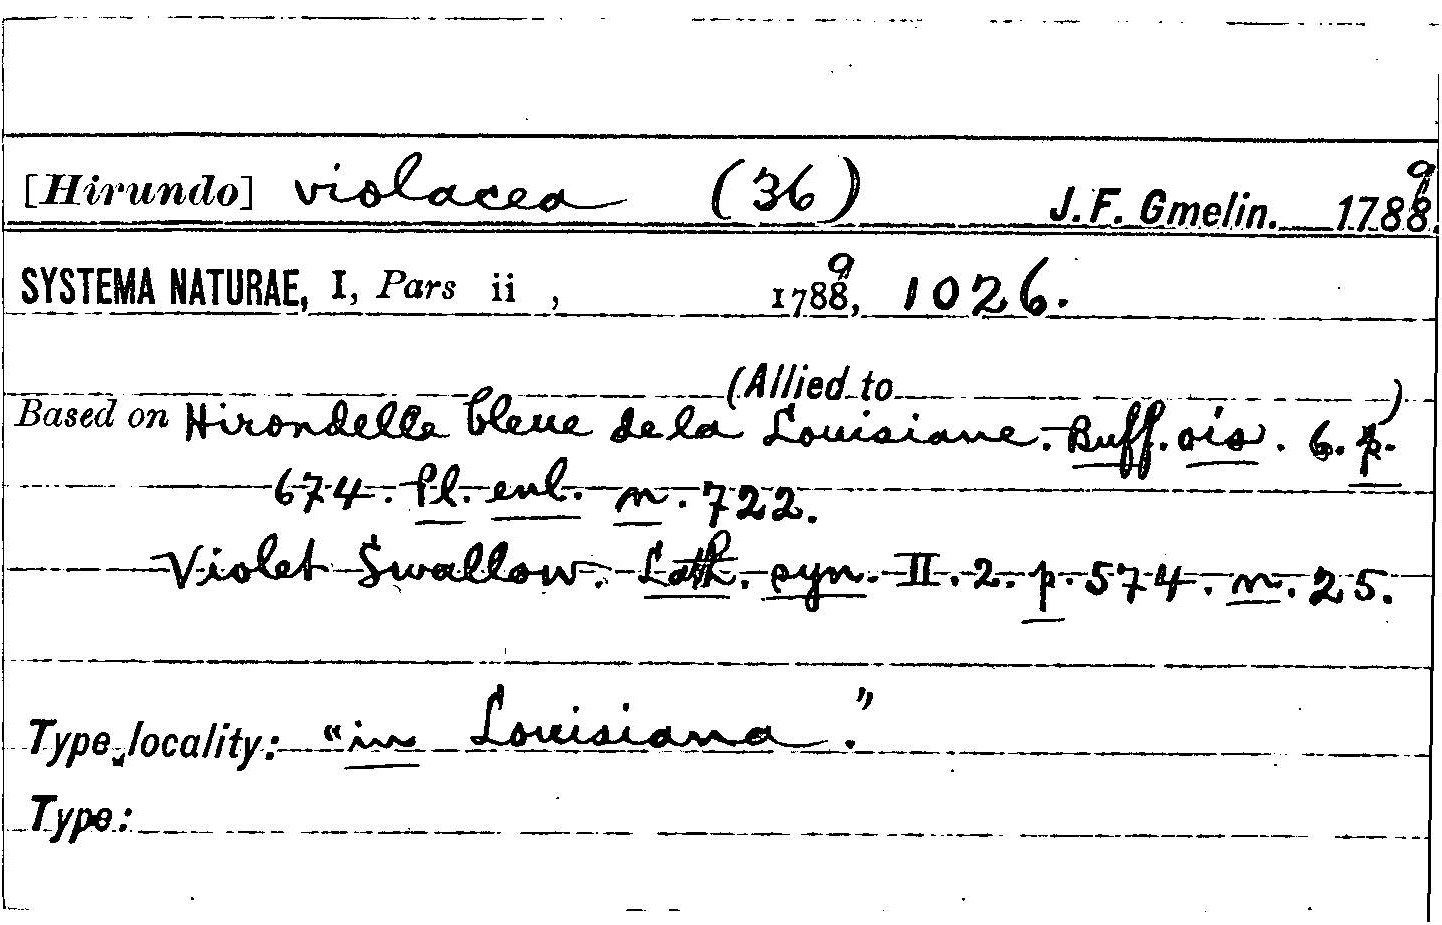 [Hirundo] violacea (36) J. F. Gmelin. 17889
SYSTEMA NATURAE, I, Pars ii , 17889, 1026.
(Allied to )
Based on Hirondelle bleue de la Louisiane. Buff. ois. 6. p.
674. Pl. enl. n. 722.
Violet Swallow. Lath. syn. II. 2. p. 574. n. 25.
Type locality: "in Louisiana."
Type: